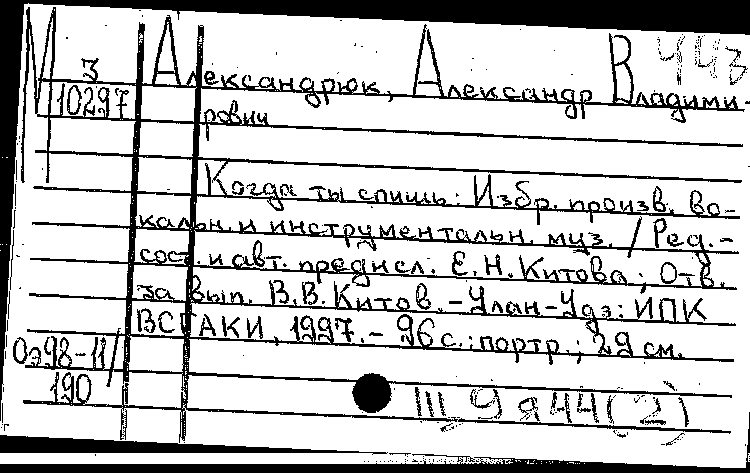 М З
10297
Александрюк, Александр Владими-
рович
443
Когда ты спишь: Избр. произв. во-
кальн. и инструментальн. муз. / Ред.-
сост. и авт. предисл. Е.Н. Китова; Отв.
за вып. В.В. Китов. - Улан-Удэ: ИПК
ВСГАКИ, 1997. - 96 с.: портр.; 29 см.
Оэ98-11/
190
III 9 я 44 (2)